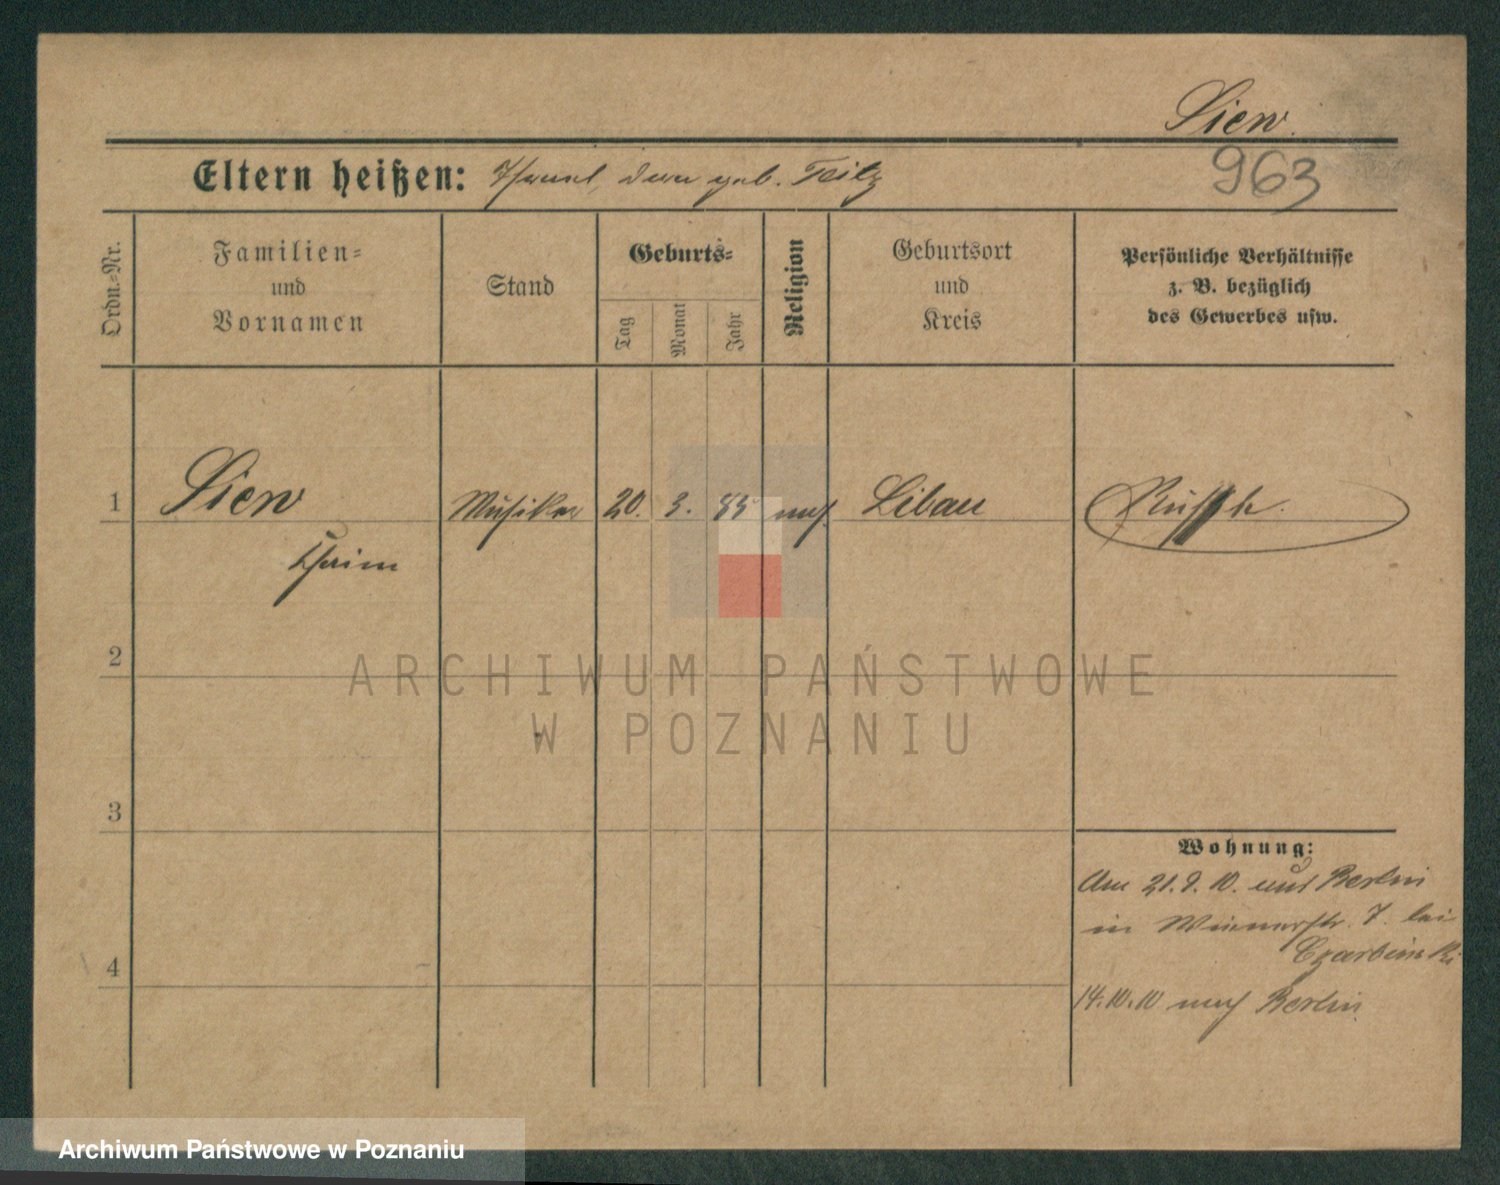 Siew.
963
Eltern heißen: geb.
Ordn.-Nr.
Familien-
und
Vornamen
Stand
Geburts-
Tag
Monat
Jahr
Religion
Geburtsort
und
Kreis
Persönliche Verhältnisse
z. B. bezüglich
des Gewerbes usw.
1
Siew
Chaim
Musiker
20.
3.
85
mos
Libau
Russe.
2
3
4
Wohnung:
Am 21.9.10. aus Berlin
in Wienerstr. 7. bei
14.10.10 nach Berlin.
ARCHIWUM PAŃSTWOWE
W POZNANIU
Archiwum Państwowe w Poznaniu